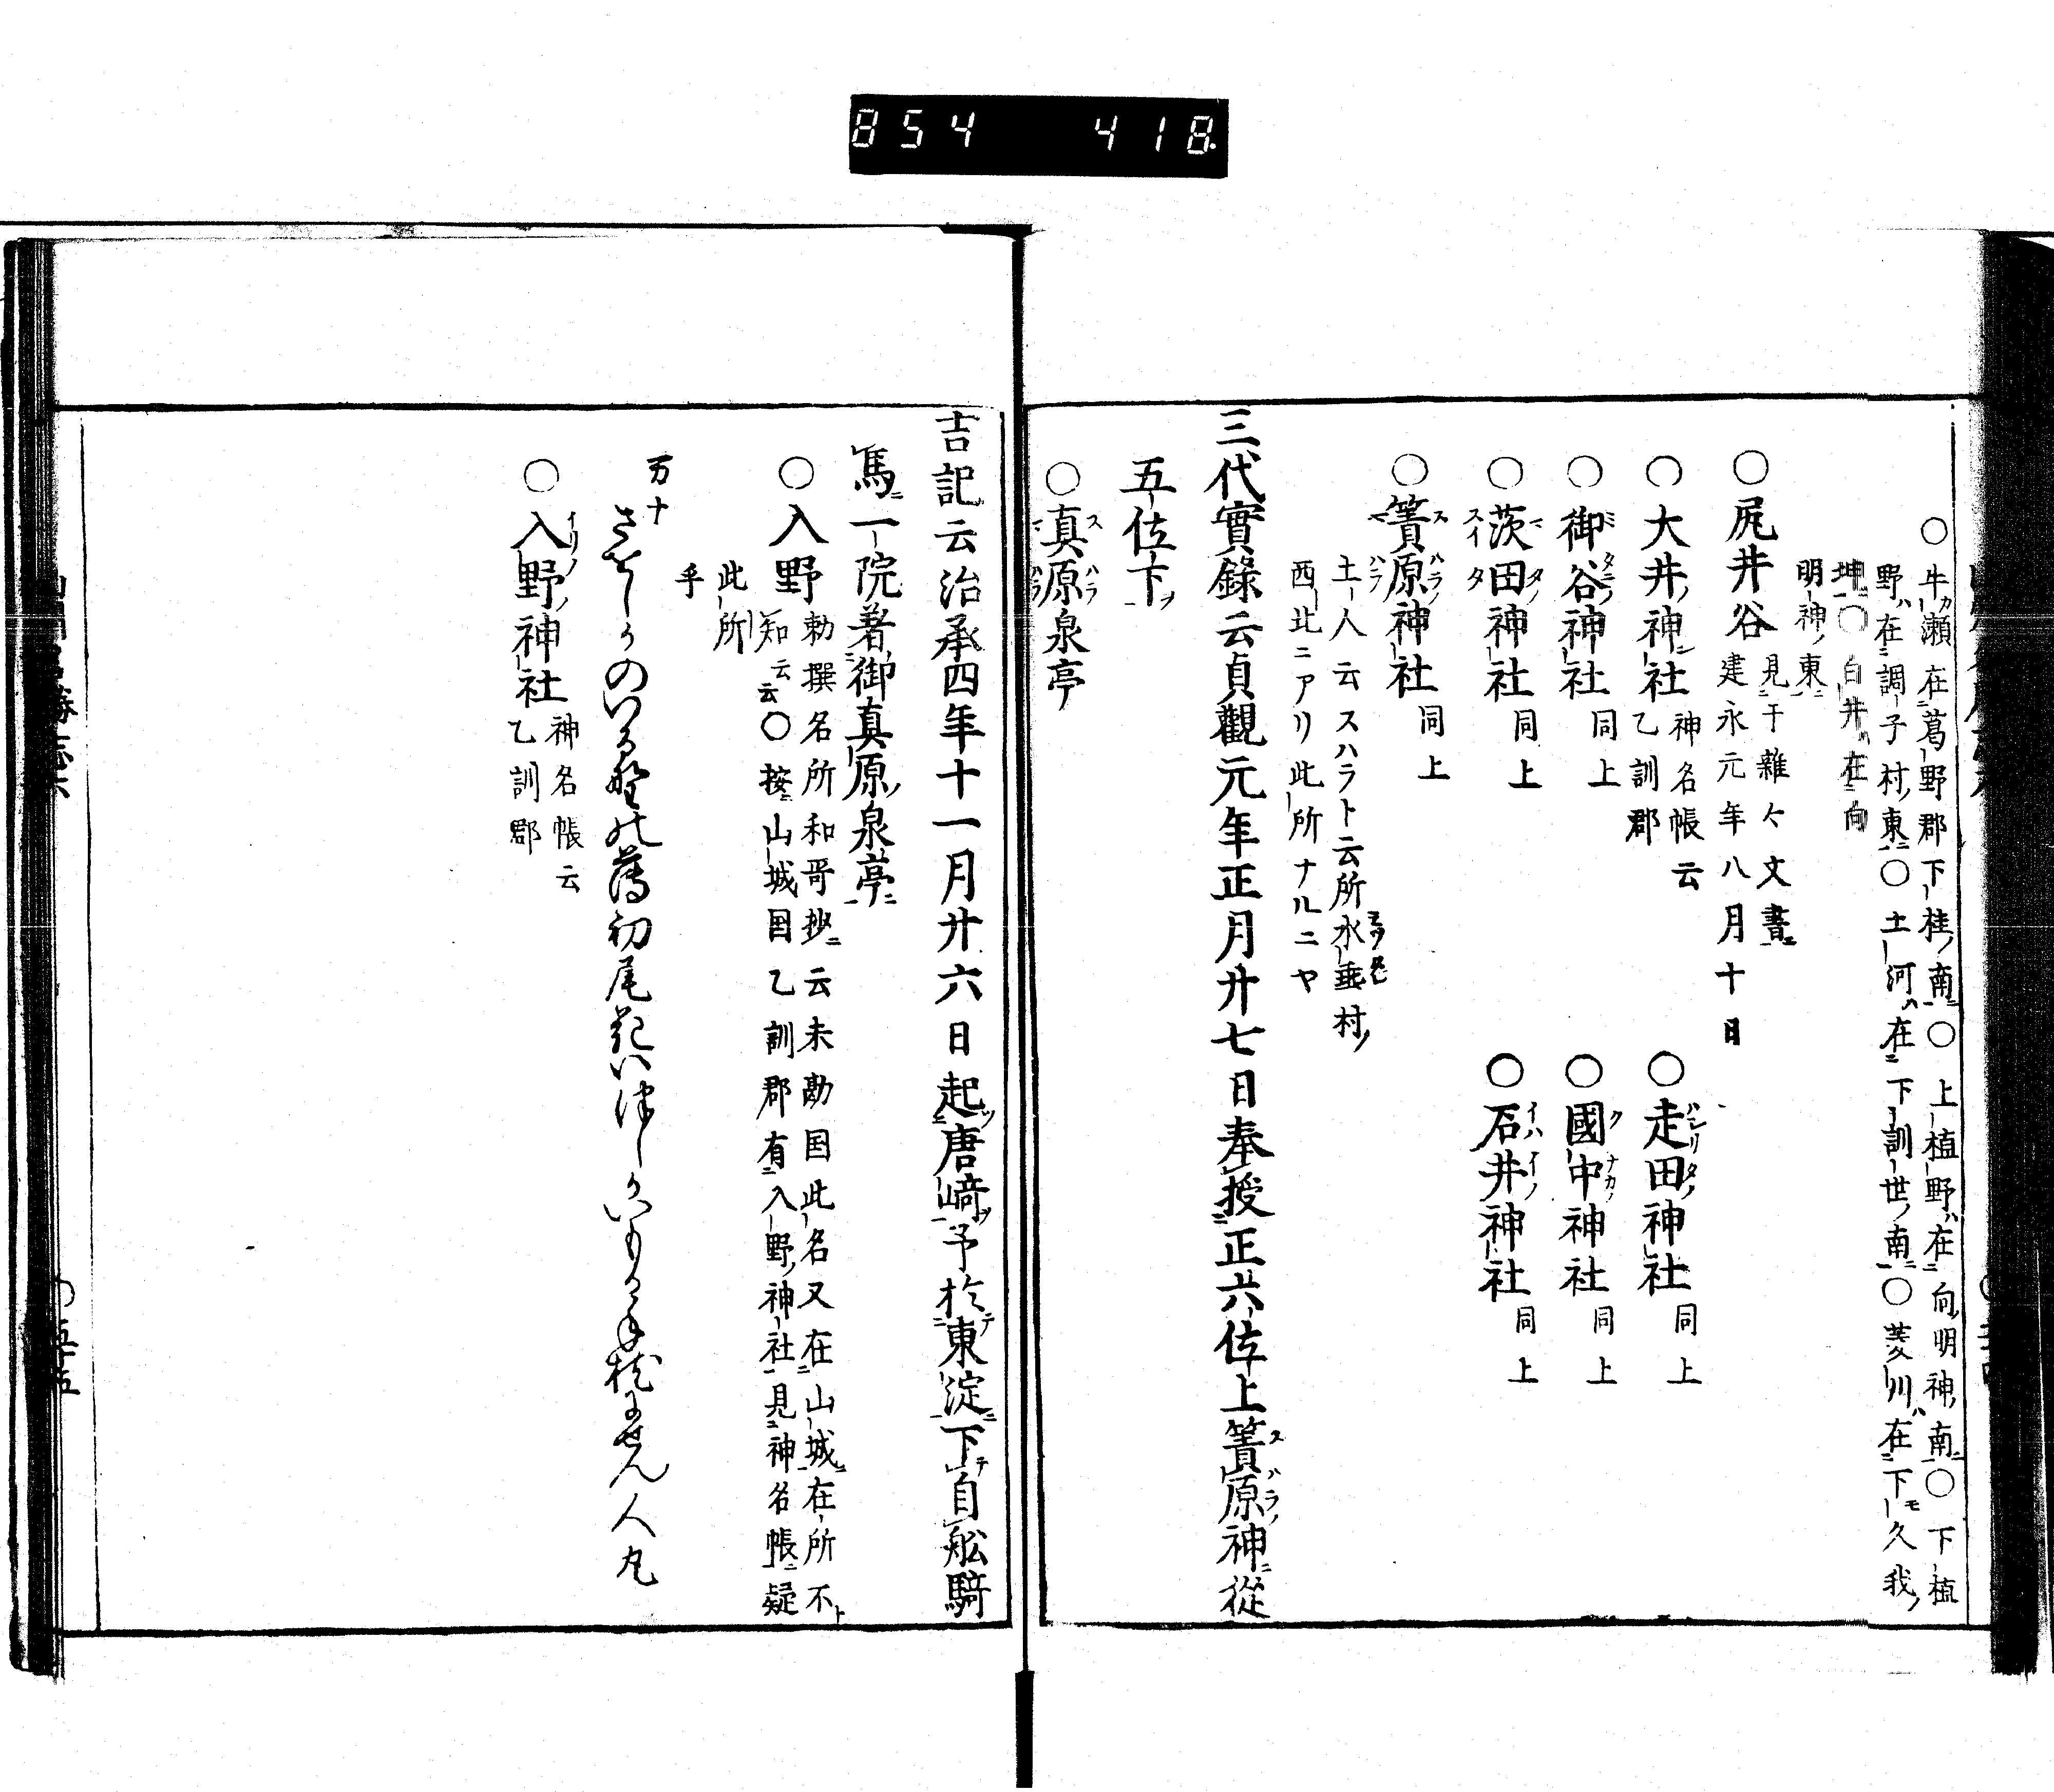 854 418
○牛瀬在葛野郡下桂南○上植野在向明神南○下植
野在調子村東○土河在下訓世南○菱川在下久我
坤○白井在向
明神東
○尻井谷見于雑々文書
建永元年八月十日
○大井神社神名帳云
乙訓郡
○走田神社同上
○御谷神社同上
○國中神社同上
○茨田神社同上
○石井神社同上
○簀原神社同上
土人云スハラト云所水垂村ノ
西北ニアリ此所ナルニヤ
三代實錄云貞觀元年正月廿七日奉授正六位上簀原神從
五位下
○真原泉亭
吉記云治承四年十一月廿六日起唐﨑予於東淀下自舩騎
馬一院著御真原泉亭
○入野勅撰名所和哥抄云未勘国此名又在山城在所不
知云云○按山城国乙訓郡有入野神社見神名帳疑
此所
乎
万十
さをしかのいる野の薄初尾花いつしかいもか手枕にせん人丸
○入野神社神名帳云
乙訓郡